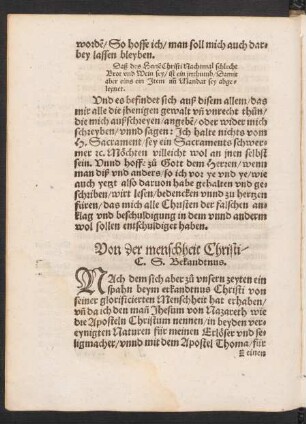 wordē/ So hoffe ich/ man soll mich auch dar-
bey lassen bleyben.
Das des Herrē Christi Nachtmal schlecht
Brot vnd Wein sey/ ist ein irrthumb/ Damit
aber eins ein Item vñ Mandat sey abge-
leynet.
Vnd es befindet sich auß disem allem/ das
mir alle die jhenigen gewalt vñ vnrecht thün/
die mich außschreyen/ angebē/ oder wider mich
schreyben/ vnnd sagen: Ich halte nichts vom
H. Sacrament/ sey ein Sacramentschwer-
mer ꝛc. Möchten villeich wol an jnen selbst
sein. Vnnd hoff: zu Gott dem Herzen/ wenn
man diß vnd anders/ so ich vor ye vnd ye/ wie
auch yetzt also daruon habe gehalten vnd ge-
schriben/ wirt lesen/ bedencken vnnd zu hertzen
füren/ das mich alle Christen der falschen an-
klag vnd beschuldigung in dem vnnd anderm
wol sollen entschuldiget haben.
Von der menschheit Christi/
C. S. Bekandtnus.
NAch dem sich aber zů vnsern zeyten ein
spahn beym erkandtnus Christi von
seiner glorificierten Menschheit hat erhaben/
vñ da ich den mañ Jhesum von Nazareth wie
die Aposteln Christum nennen/ in beyden ver-
eynigten Naturen für meinen Erlöser vnd se-
ligmacher/ vnnd mit dem Apostel Thoma/ für
E einen